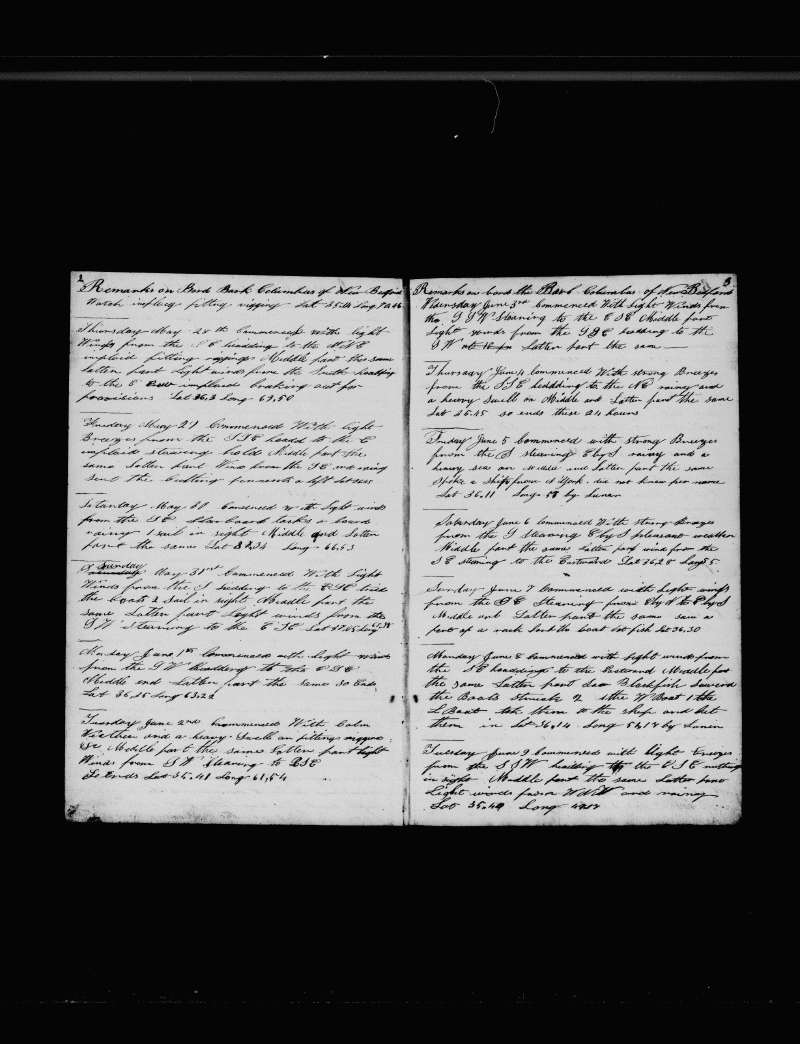 2
Remarks on Bord Bark Columbus of New Bedford
Watch imploy fitting rigging Lat 35.14 Long 70,46
Thursday May 28th Commences with light
Winds from the heading to the
imploid fitting rigging Middle part the same
latter part Light winds from the South heading
to the E Crew imploid braking out for
provisions Lat 36,3 Long 69,50
Friday May 29 Commenced With light
Breezes from the SSE headd to the E
imploid stearing bold Middle part the
same Latter part Wind from the SE and rainy
sent the Cutting
Saturday May 30 Comenced with light winds
from the SE Starboard tacks a bord
rainy 1 sail in sight Middle and Latter
part the same Lat 37,34 Long 66.53
Sunday May 31st Commenced With Light
Winds from the S hedding to the ESE
the boats 2 Sail in sight Middle part the
same Latter part Light winds from the
SW Stearning to the ESE Lat 37.05 Long
Monday June 1st Commenced with light wind
from the SW Heading to the ESE
Middle and Latter part the same So Ends
Lat 36,25 Long 63,22
Tuesday June 2nd Commenced With Calm
Weather and a heavy Swell on fitting
Middle part the same Latter part light
Winds from SW Stearing to ESE
So Ends Lat 35,41 Long 61,54
3
Remarks on bord the Bark Columbus of New Bedford
Wdensday June 3rd Commenced With Light Winds from
the SSW Stearing to the ESE Middle part
Light winds from the SSE heading to the
SW Latter part the same
Thursday June 4 Commenced With strong Breezes
from the SSE heddding to the NE rainy and
a heavy swell on Middle and Latter part the same
Lat 35.45 so ends these 24 hours
Friday June 5 Commenced with strong Breezes
from the S stearing E by S rainy and a
heavy sea on Middle and Latter part the same
Spoke a ship from N York did not know her name
Lat 36.11 Long 58 by Lunar
Saturday June 6 Commenced With strong Breezes
from the S Stearing E by S pleasant weather
Middle part the same Latter part wind from the
SE stearing to the Eastward Lat 36,28 Long
Sunday June 7 Commenced with Light winds
from the SE Stearing from E by N to E by S
Middle and Latter part the same saw a
part of a rack sent the boat Got fish Lat 36,30
Monday June 8 Commenced with Light winds from
the SE headding to the Eastward Middle part
the same Latter part saw Blackfish Lowerd
the Boats struck 2 the W Boat 1 the
L Boat tok them to the ship and cut
them in Lat 36,14 Long 51,17 by Lunar
Tuesday June 9 Commenced with light Breezes
from the SSW heading to the ESE nothing
in sight Middle part the same Latter part
Light winds from WNW and rainy
Lat 35,44 Long